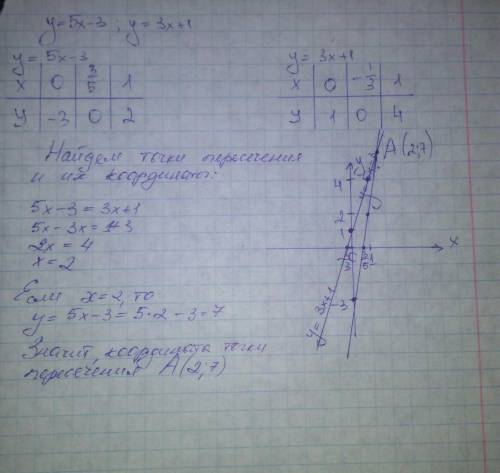 y=5x-3 ; y=3x+1
y=5x-3
x | 0 | 3/5 | 1
y | -3 | 0 | 2
y=3x+1
x | 0 | -1/3 | 1
y | 1 | 0 | 4
Найдем точки пересечения
и их координаты:
5x-3=3x+1
5x-3x=1+3
2x=4
x=2
Если x=2, то
y=5x-3=5·2-3=7
Значит, координата точки
пересечения A(2;7)
A(2;7)
y
4
2
1
x
-1/3 3/5 1
-3
y=3x+1